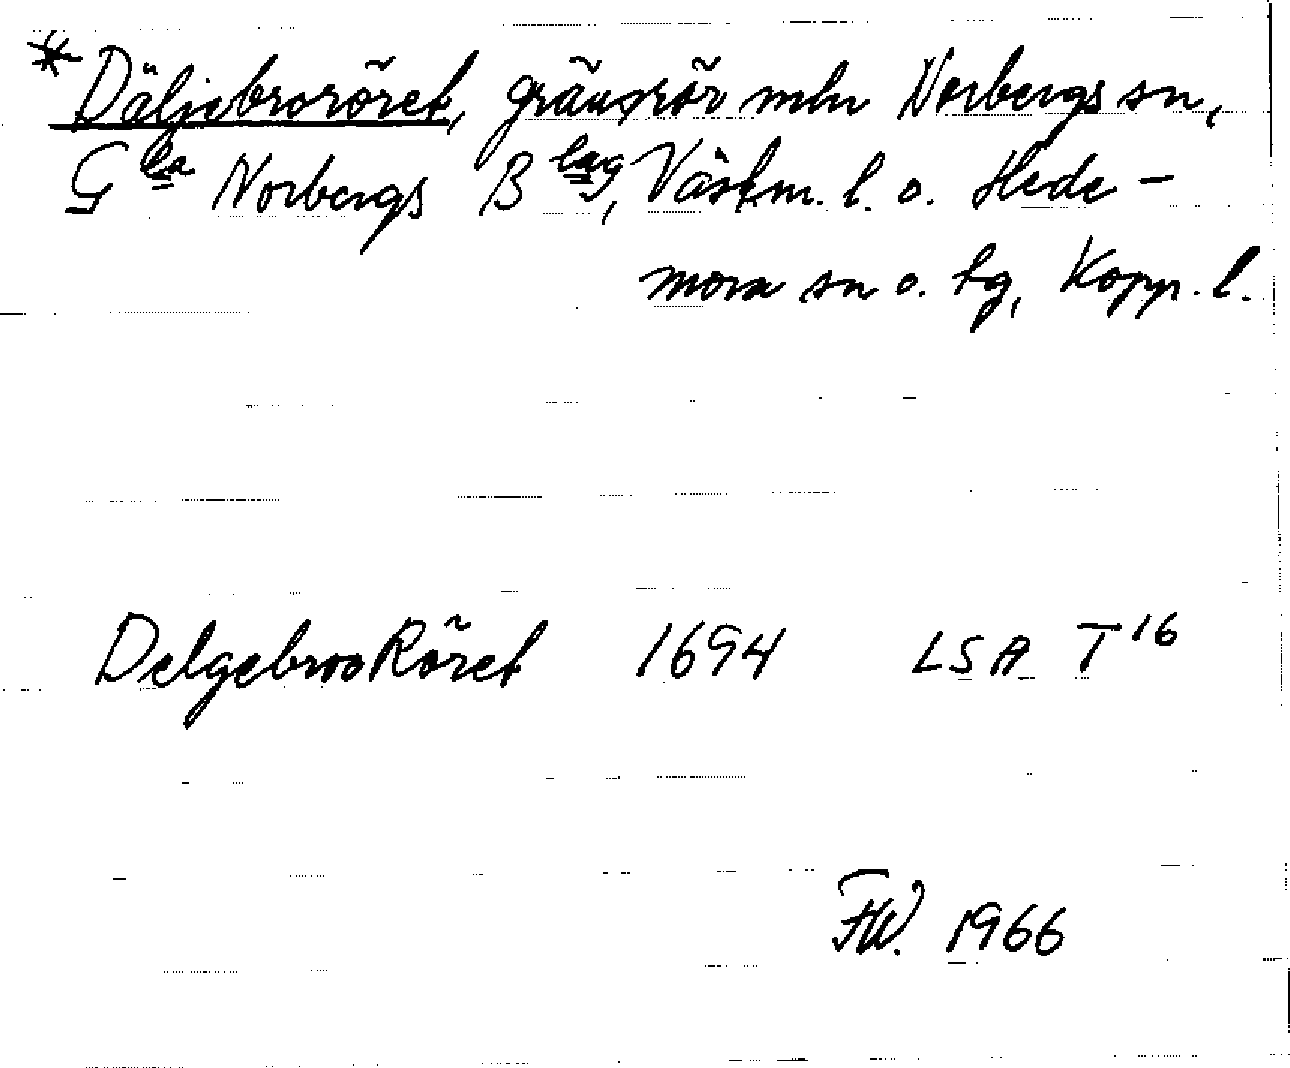 * Däljebroröret, gränsrör mln Norbergs sn,
G la Norbergs B lag, Västm. l. o. Hede-
mora sn o. tg, Kopp. l.
DelgebrooRöret 1694 LSA T 16
FW. 1966